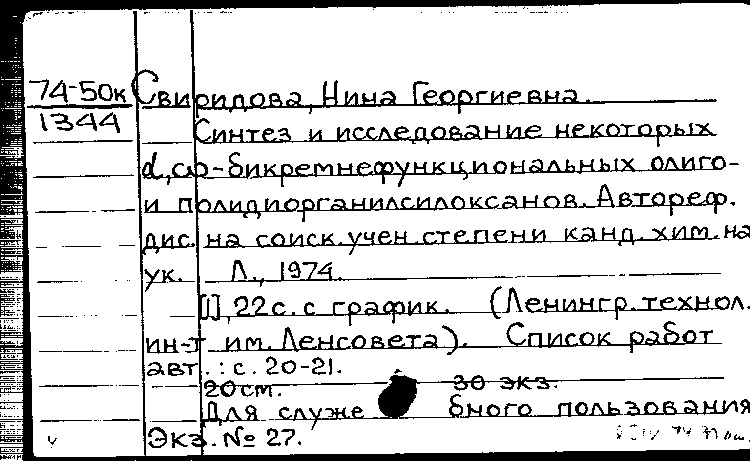 74-50к Свиридова, Нина Георгиевна.
1344 Синтез и исследование некоторых
α,ω-бикремнефункциональных олиго-
и полидиорганилсилоксанов. Автореф.
дис. на соиск. учен. степени канд. хим. на
ук. Л., 1974.
[I], 22 с. с график. (Ленингр. технол.
ин-т им. Ленсовета). Список работ
авт.: с. 20-21.
20 см. 30 экз.
Для служе бного пользования
Экз. № 27.